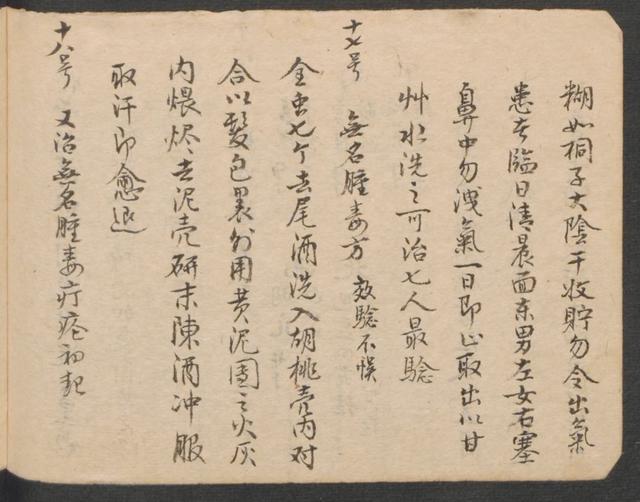 糊如桐子大陰干收貯勿令出氣
患者臨日清晨面东男左女右塞
鼻中勿洩氣一日即止取出以甘
艸水洗之可治七人最驗
十七号 無名腫毒方 效驗不悮
全虫七个去尾酒洗入胡桃壳内对
合以髮包裹外用黄泥團之火灰
内煨烬去泥壳研末陳酒冲服
取汗即愈退
十八号 又治無名腫毒疔疮初起